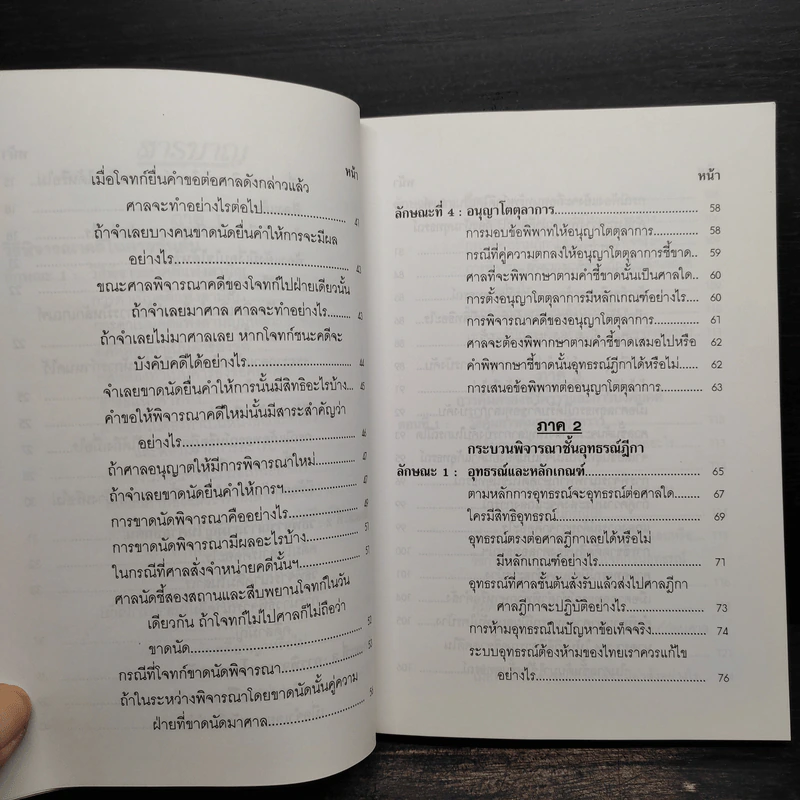 หน้า
เมื่อโจทก์ยื่นคำขอต่อศาลดังกล่าวแล้ว
ศาลจะทำอย่างไรต่อไป.................... 41
ถ้าจำเลยบางคนขาดนัดยื่นคำให้การจะมีผล
อย่างไร.................... 42
ขณะศาลพิจารณาคดีของโจทก์ไปฝ่ายเดียวนั้น
ถ้าจำเลยมาศาล ศาลจะทำอย่างไร......... 43
ถ้าจำเลยไม่มาศาลเลย หากโจทก์ชนะคดีจะ
บังคับคดีได้อย่างไร.................... 44
จำเลยขาดนัดยื่นคำให้การนั้นมีสิทธิอะไรบ้าง... 45
คำขอให้พิจารณาคดีใหม่นั้นมีสาระสำคัญว่า
อย่างไร.................... 46
ถ้าศาลอนุญาตให้มีการพิจารณาใหม่............
ถ้าจำเลยขาดนัดยื่นคำให้การฯ....................
การขาดนัดพิจารณาคืออย่างไร....................
การขาดนัดพิจารณามีผลอะไรบ้าง....................
ในกรณีที่ศาลสั่งจำหน่ายคดีนั้นฯ....................
ศาลนัดชี้สองสถานและสืบพยานโจทก์ในวัน
เดียวกัน ถ้าโจทก์ไม่ไปศาลก็ไม่ถือว่า
ขาดนัด....................
กรณีที่โจทก์ขาดนัดพิจารณา.................... 53
ถ้าในระหว่างพิจารณาโดยขาดนัดนั้นคู่ความ
ฝ่ายที่ขาดนัดมาศาล.................... 54
หน้า
ลักษณะที่ 4 : อนุญาโตตุลาการ.................... 58
การมอบข้อพิพาทให้อนุญาโตตุลาการ........... 58
กรณีที่คู่ความตกลงให้อนุญาโตตุลาการชี้ขาด.. 59
ศาลที่จะพิพากษาตามคำชี้ขาดนั้นเป็นศาลใด.. 60
การตั้งอนุญาโตตุลาการมีหลักเกณฑ์อย่างไร.... 60
การพิจารณาคดีของอนุญาโตตุลาการ............ 61
ศาลจะต้องพิพากษาตามคำชี้ขาดเสมอไปหรือ 62
คำพิพากษาชี้ขาดนั้นอุทธรณ์ฎีกาได้หรือไม่...... 62
การเสนอข้อพิพาทต่ออนุญาโตตุลาการ........... 63
ภาค 2
กระบวนพิจารณาชั้นอุทธรณ์ฎีกา
ลักษณะ 1 : อุทธรณ์และหลักเกณฑ์.................... 65
ตามหลักการอุทธรณ์จะอุทธรณ์ต่อศาลใด....... 67
ใครมีสิทธิอุทธรณ์.................... 69
อุทธรณ์ตรงต่อศาลฎีกาเลยได้หรือไม่
มีหลักเกณฑ์อย่างไร.................... 71
อุทธรณ์ที่ศาลชั้นต้นสั่งรับแล้วส่งไปศาลฎีกา
ศาลฎีกาจะปฏิบัติอย่างไร.................... 73
การห้ามอุทธรณ์ในปัญหาข้อเท็จจริง............. 74
ระบบอุทธรณ์ต้องห้ามของไทยเราควรแก้ไข
อย่างไร.................... 76